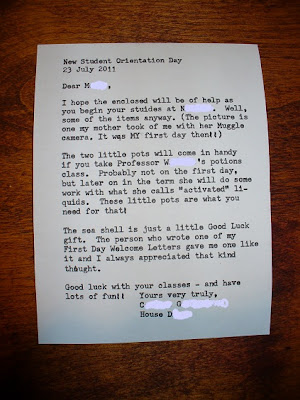 New Student Orientation Day
23 July 2011
Dear M
I hope the enclosed will be of help as
you begin your stuides at N      .  Well,
some of the items anyway. (The picture is
one my mother took of me with her Muggle
camera. It was MY first day then!!)
The two little pots will come in handy
if you take Professor W      's potions
class.  Probably not on the first day,
but later on in the term she will do some
work with what she calls "activated" li-
quids.  These little pots are what you
need for that!
The sea shell is just a little Good Luck
gift.  The person who wrote one of my
First Day Welcome Letters gave me one like
it and I always appreciated that kind
thought.
Good luck with your classes - and have
lots of fun!!  Yours very truly,
C      G
House D